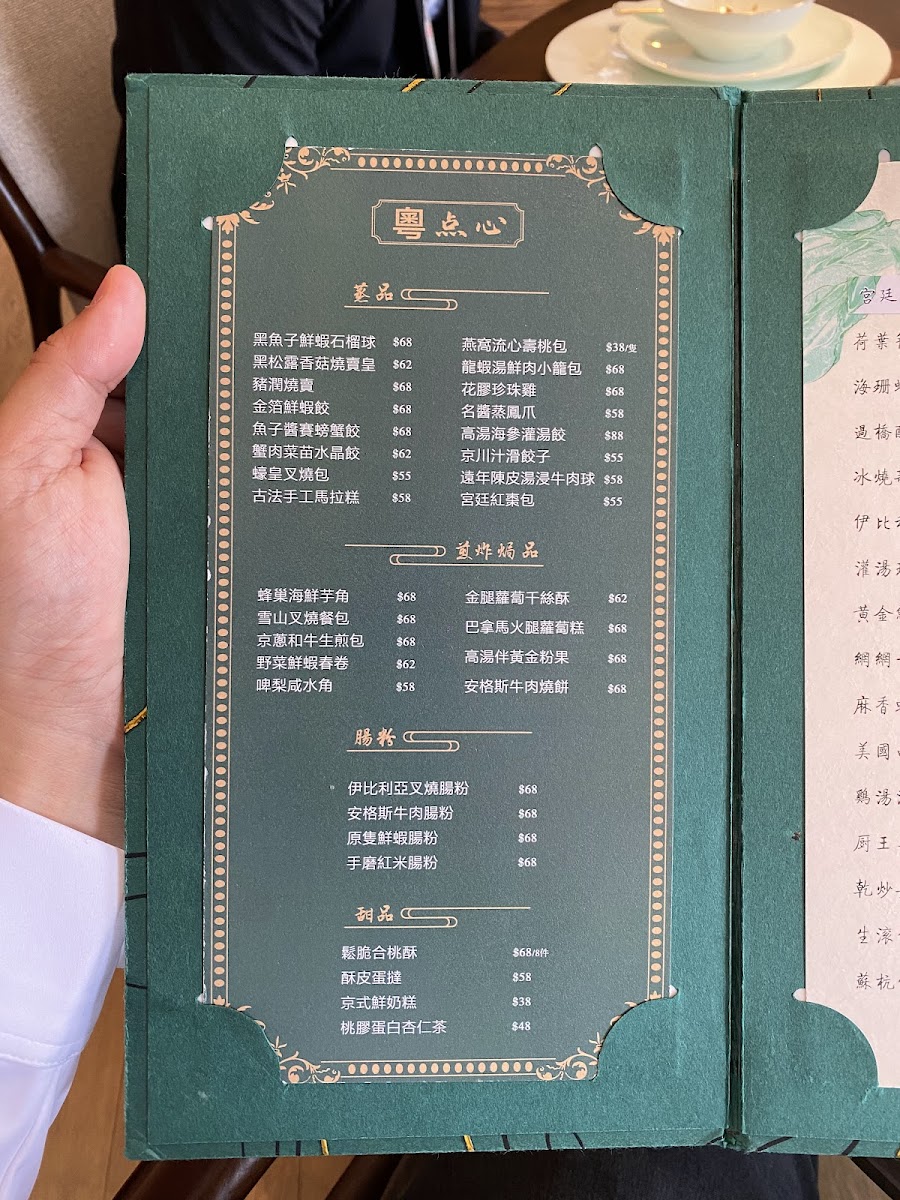 粵点心
蒸品
黑魚子鮮蝦石榴球 $68
黑松露香菇燒賣皇 $62
豬潤燒賣 $68
金箔鮮蝦餃 $68
魚子醬賽螃蟹餃 $68
蟹肉菜苗水晶餃 $62
蠔皇叉燒包 $55
古法手工馬拉糕 $58
燕窩流心壽桃包 $38/隻
龍蝦湯鮮肉小籠包 $68
花膠珍珠雞 $68
名醬蒸鳳爪 $58
高湯海參灌湯餃 $88
京川汁滑餃子 $55
遠年陳皮湯浸牛肉球 $58
宮廷紅棗包 $55
煎炸焗品
蜂巢海鮮芋角 $68
雪山叉燒餐包 $68
京蔥和牛生煎包 $68
野菜鮮蝦春卷 $62
啤梨咸水角 $58
金腿蘿蔔干絲酥 $62
巴拿馬火腿蘿蔔糕 $68
高湯伴黃金粉果 $68
安格斯牛肉燒餅 $68
腸粉
伊比利亞叉燒腸粉 $68
安格斯牛肉腸粉 $68
原隻鮮蝦腸粉 $68
手磨紅米腸粉 $68
甜品
鬆脆合桃酥 $68/8件
酥皮蛋撻 $58
京式鮮奶糕 $38
桃膠蛋白杏仁茶 $48
宮廷
荷葉
海珊
過橋
冰燒
伊比
灌湯
黃金
網網
麻香
美國
鷄湯
厨王
乾炒
生滾
蘇杭